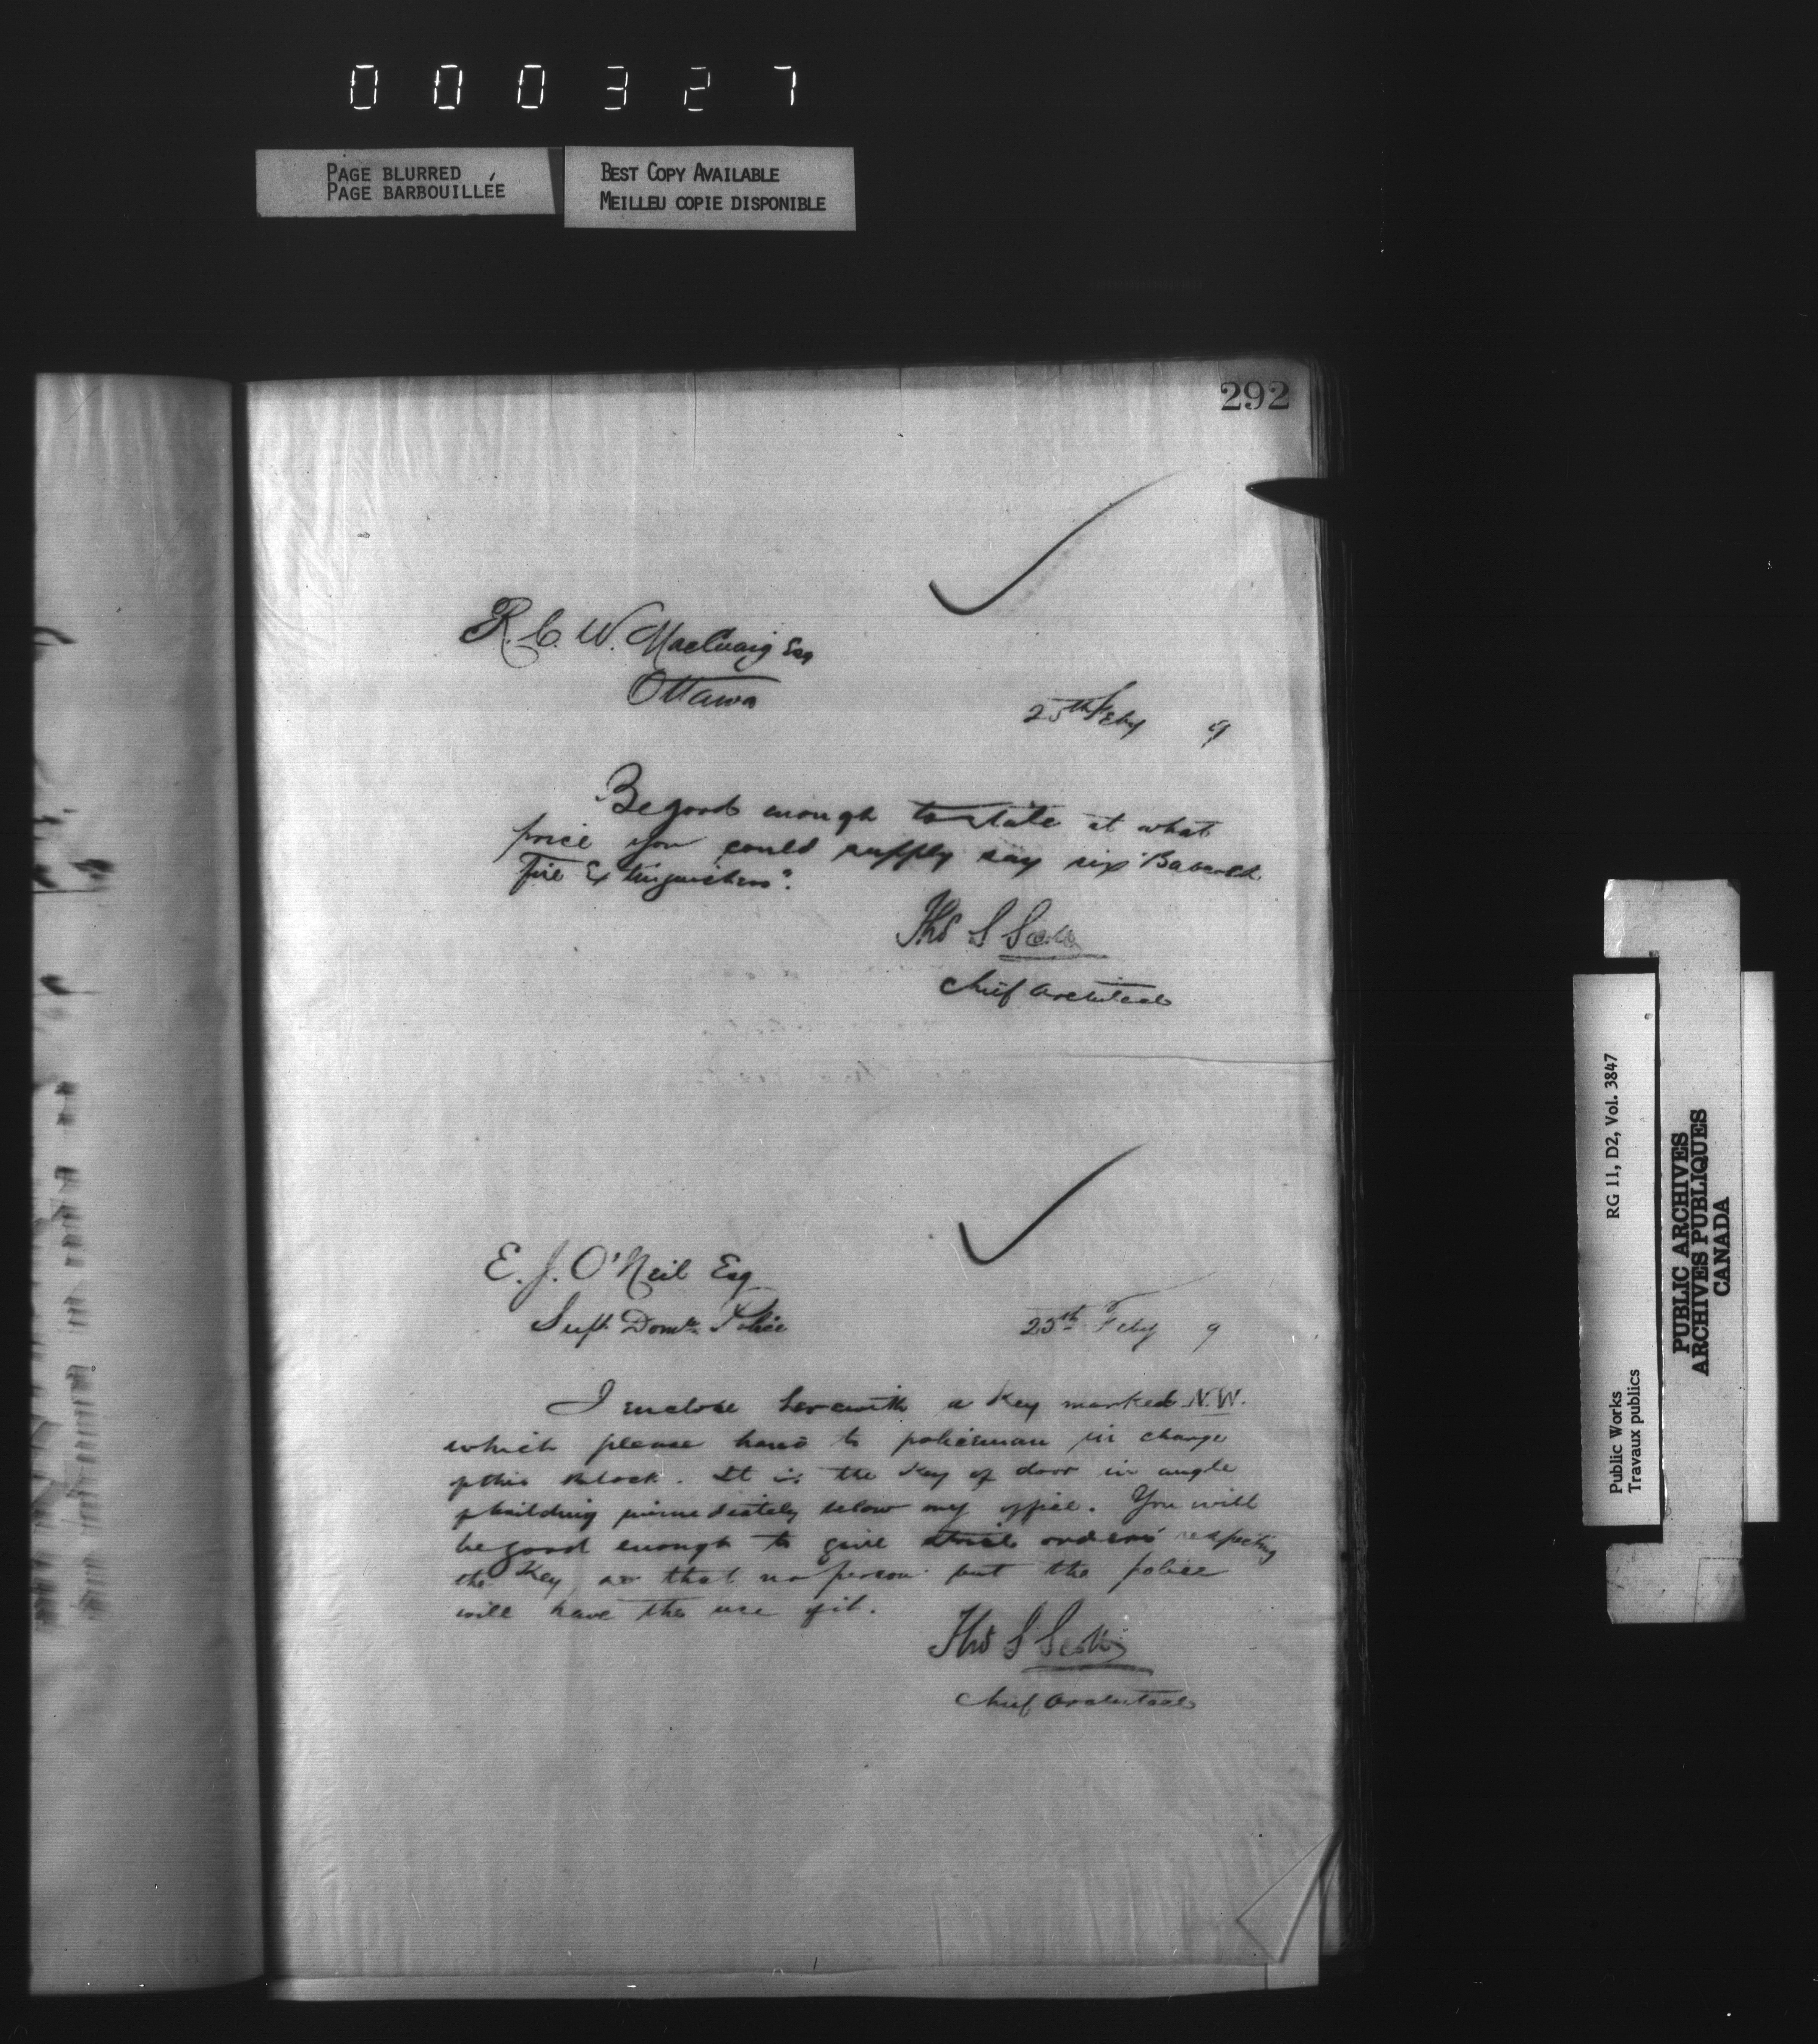 000327
PAGE BLURRED
PAGE BARBOUILLÉE
BEST COPY AVAILABLE
MEILLEU COPIE DISPONIBLE
292
R. C. W. MacCuaig Esq
Ottawa
25th Feby 9
Be good enough to state at what
price you could supply say six "Babcock
Fire Extinguishers".
Thos S Scott
Chief Architect
E. J. O'Neil Esq
Supt. Domn. Police
25th Feby 9
I enclose herewith a Key marked N.W.
which please hand to policeman in charge
of this Block. It is the Key of door in angle
of building immediately below my office. You will
be good enough to give strict orders respecting
the Key, so that no person but the police
will have the use of it.
Thos S Scott
Chief Architect
Public Works RG 11, D2, Vol. 3847
Travaux publics
PUBLIC ARCHIVES
ARCHIVES PUBLIQUES
CANADA